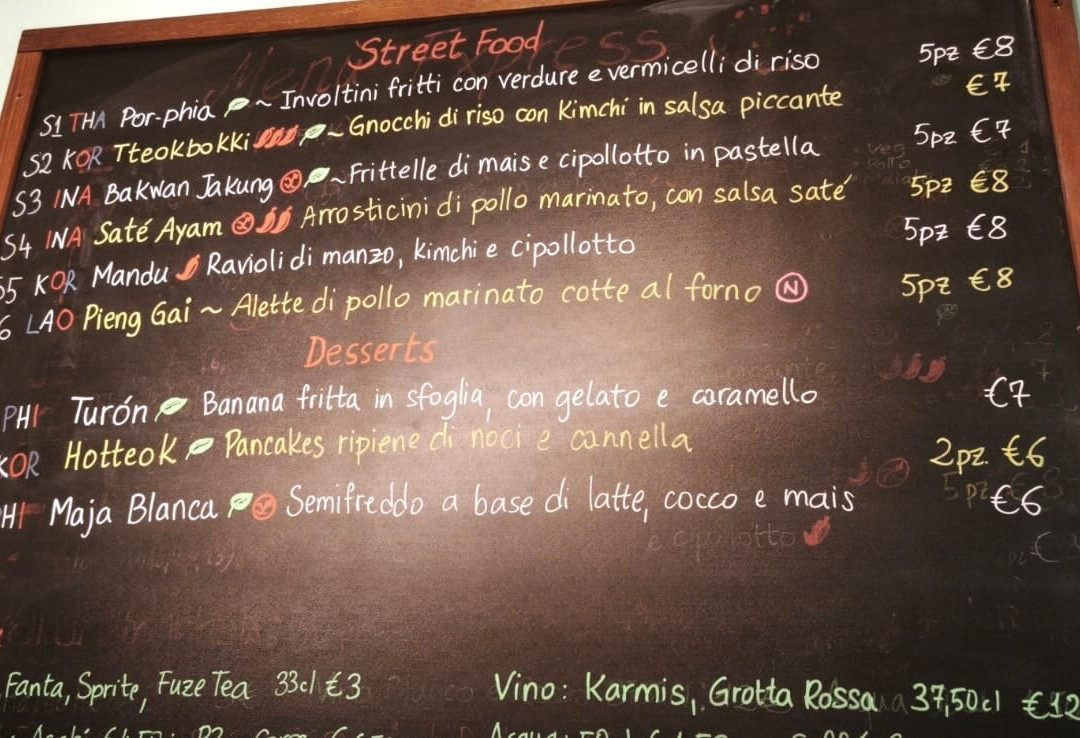 Street Food
S1 THA Por-phia ~ Involtini fritti con verdure e vermicelli di riso 5pz €8
S2 KOR Tteokbokki ~ Gnocchi di riso con Kimchi in salsa piccante €7
S3 INA Bakwan Jakung ~ Frittelle di mais e cipollotto in pastella 5pz €7
S4 INA Saté Ayam Arrosticini di pollo marinato, con salsa saté 5pz €8
S5 KOR Mandu Ravioli di manzo, kimchi e cipollotto 5pz €8
6 LAO Pieng Gai ~ Alette di pollo marinato cotte al forno N 5pz €8
Desserts
PHI Turón Banana fritta in sfoglia, con gelato e caramello €7
KOR Hotteok Pancakes ripiene di noci e cannella 2pz. €6
HI Maja Blanca Semifreddo a base di latte, cocco e mais €6
e cipollotto
Fanta, Sprite, Fuze Tea 33cl €3
Vino: Karmis, Grotta Rossa 37,50cl €12